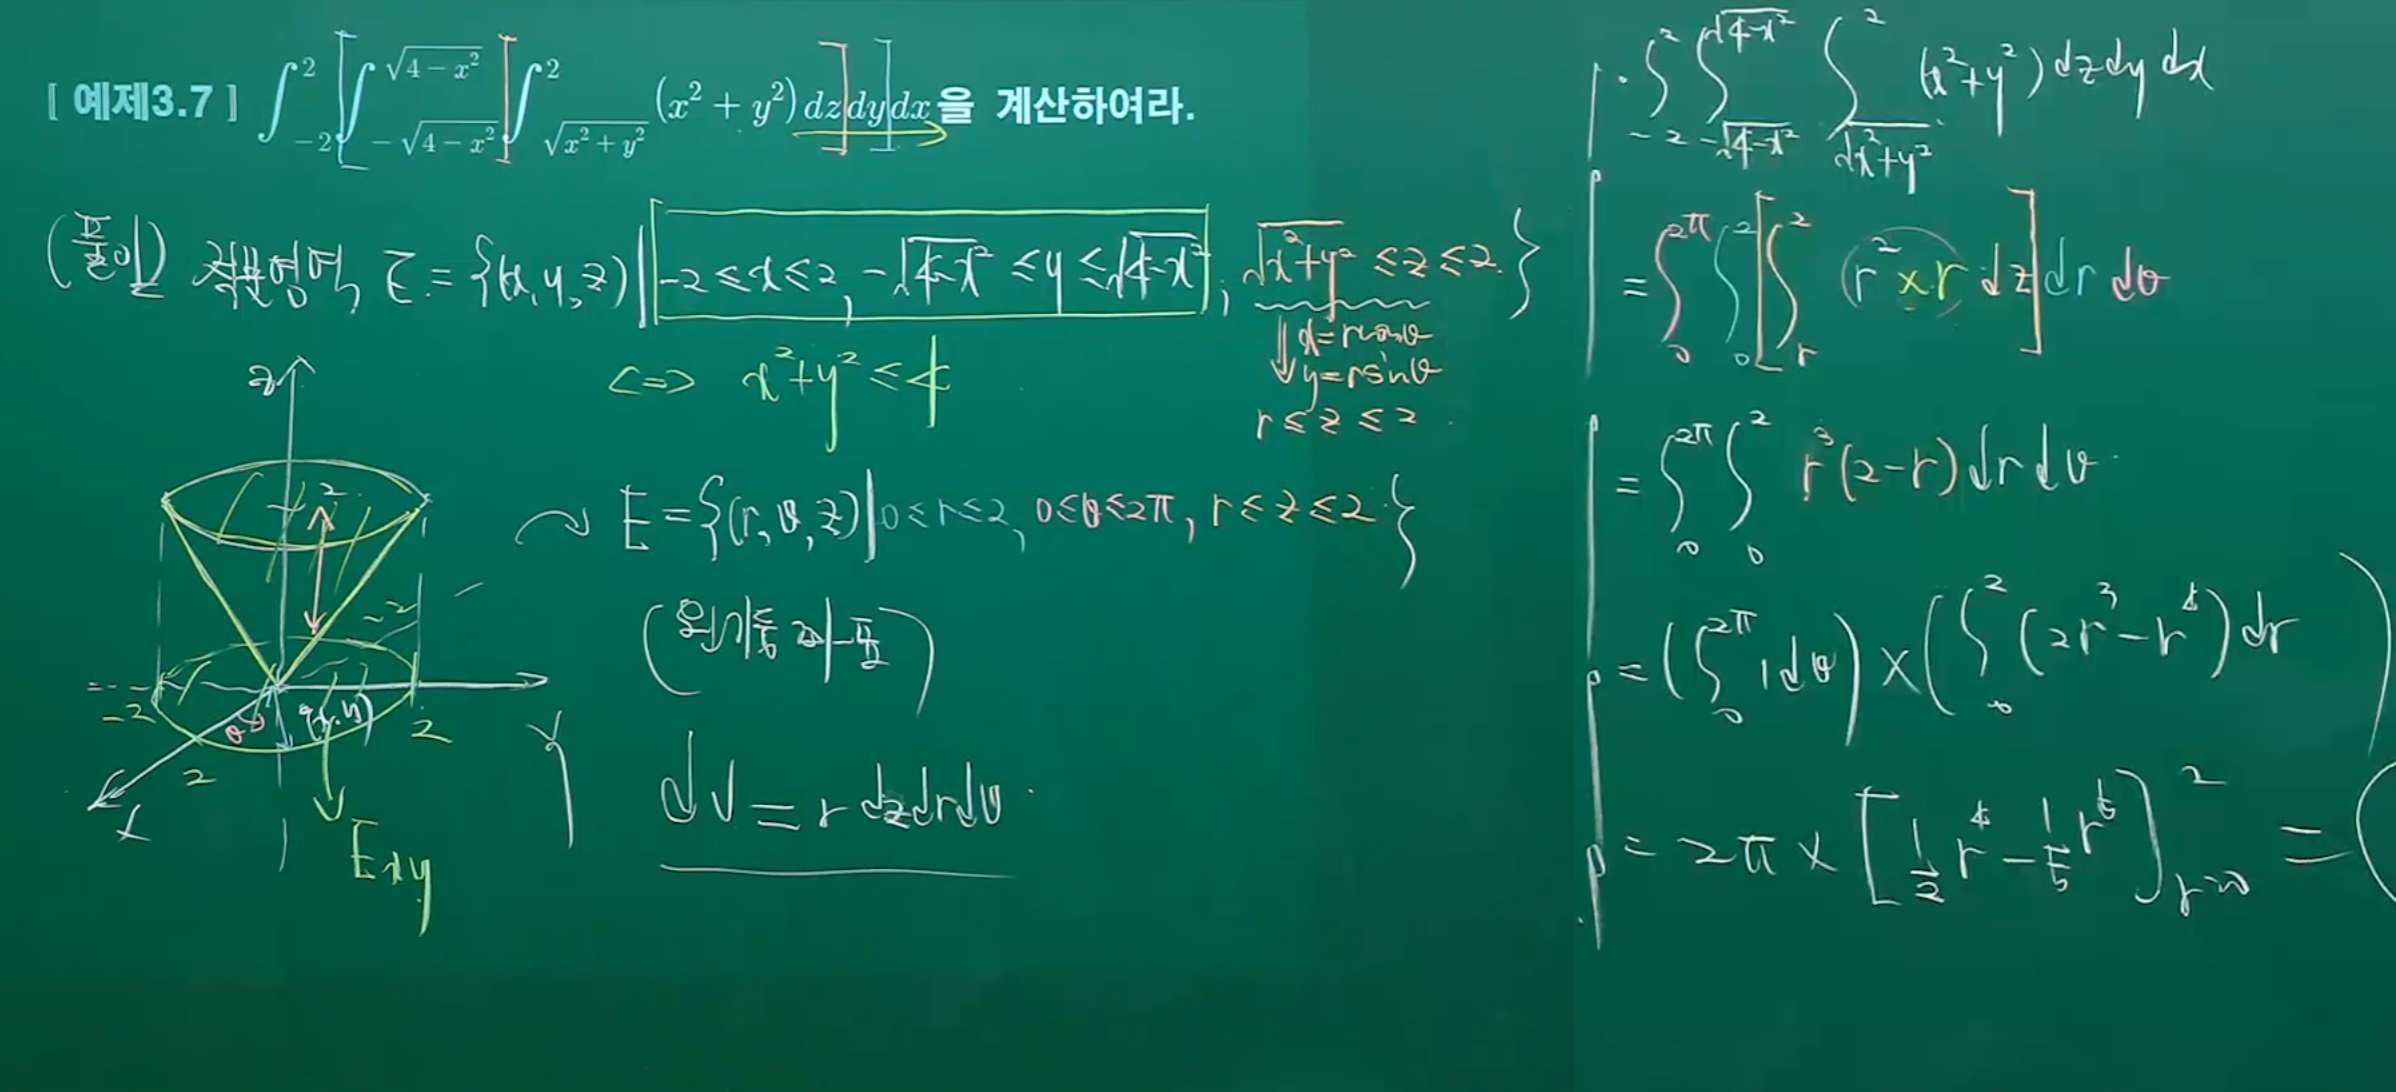 [ 예제3.7 ] ∫_{-2}^{2} [ ∫_{-√(4-x²)}^{√(4-x²)} ] ∫_{√(x²+y²)}^{2} (x² + y²) dz ] dy ] dx 을 계산하여라.
(풀이) 적분영역, E = {(x, y, z) | -2 ≤ x ≤ 2, -√(4-x²) ≤ y ≤ √(4-x²), √(x²+y²) ≤ z ≤ 2 }
⇓ x = r cosθ
y = r sinθ
r ≤ z ≤ 2
<=> x² + y² ≤ 4
z
2
-2
-2
θ
(x, y)
2
2
y
x
Exy
E = {(r, θ, z) | 0 ≤ r ≤ 2, 0 ≤ θ ≤ 2π, r ≤ z ≤ 2 }
(원기둥좌표)
dV = r dz dr dθ
∫_{-2}^{2} ∫_{-√(4-x²)}^{√(4-x²)} ∫_{√(x²+y²)}^{2} (x²+y²) dz dy dx
= ∫_{0}^{2π} ∫_{0}^{2} [ ∫_{r}^{2} r² × r dz ] dr dθ
= ∫_{0}^{2π} ∫_{0}^{2} r³(2-r) dr dθ
= ( ∫_{0}^{2π} 1 dθ ) × ( ∫_{0}^{2} (2r³ - r⁴) dr )
= 2π × [ 1/2 r⁴ - 1/5 r⁵ ]_{r=0}^{2} = (